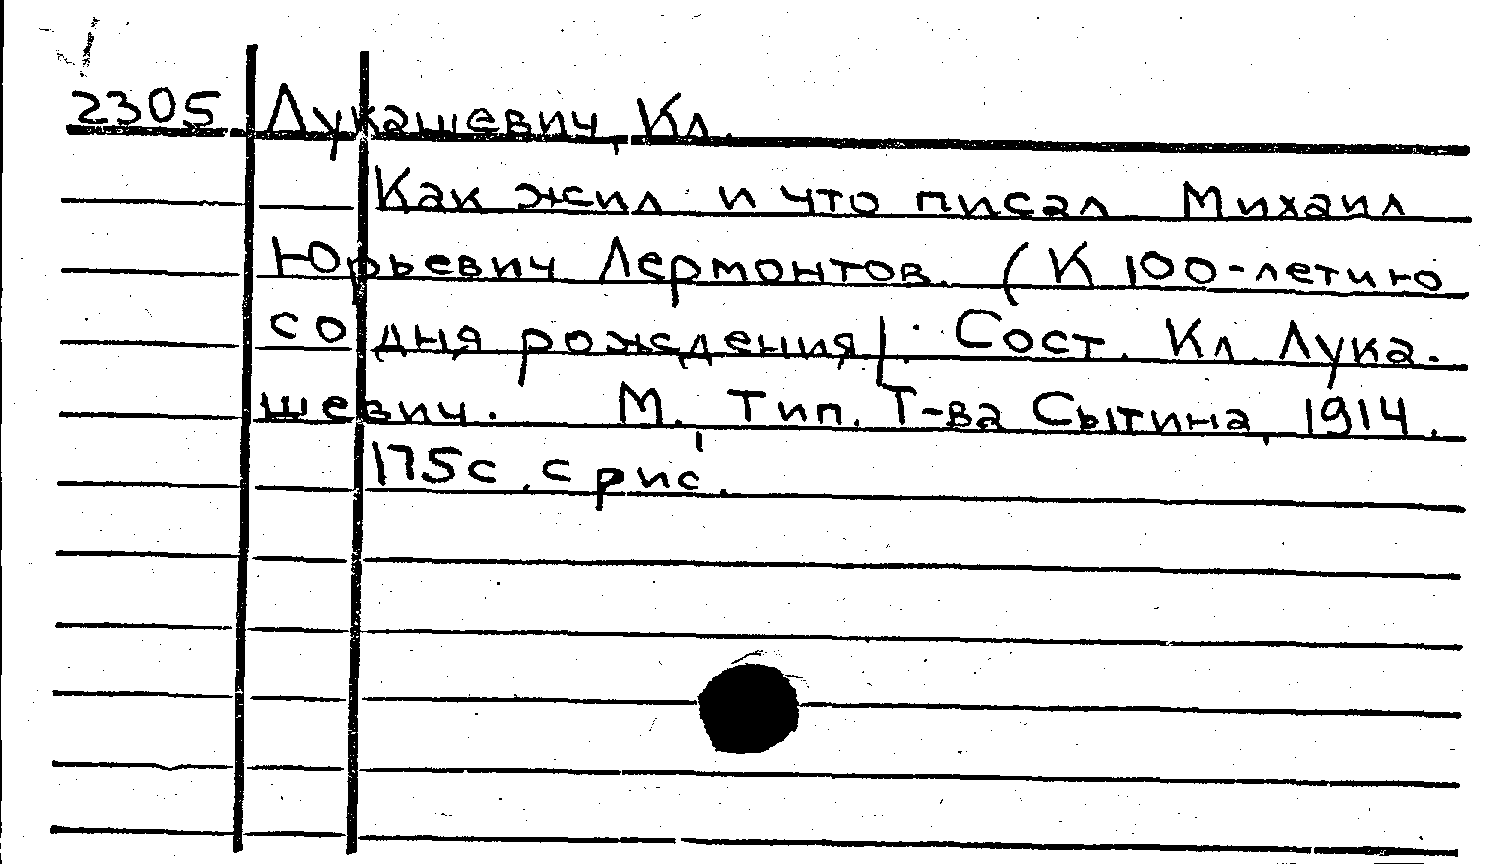 2305 Лукашевич, Кл.
Как жил и что писал Михаил
Юрьевич Лермонтов. (К 100-летию
со дня рождения). Сост. Кл. Лука-
шевич. М. Тип. Т-ва Сытина, 1914.
175с. с рис.